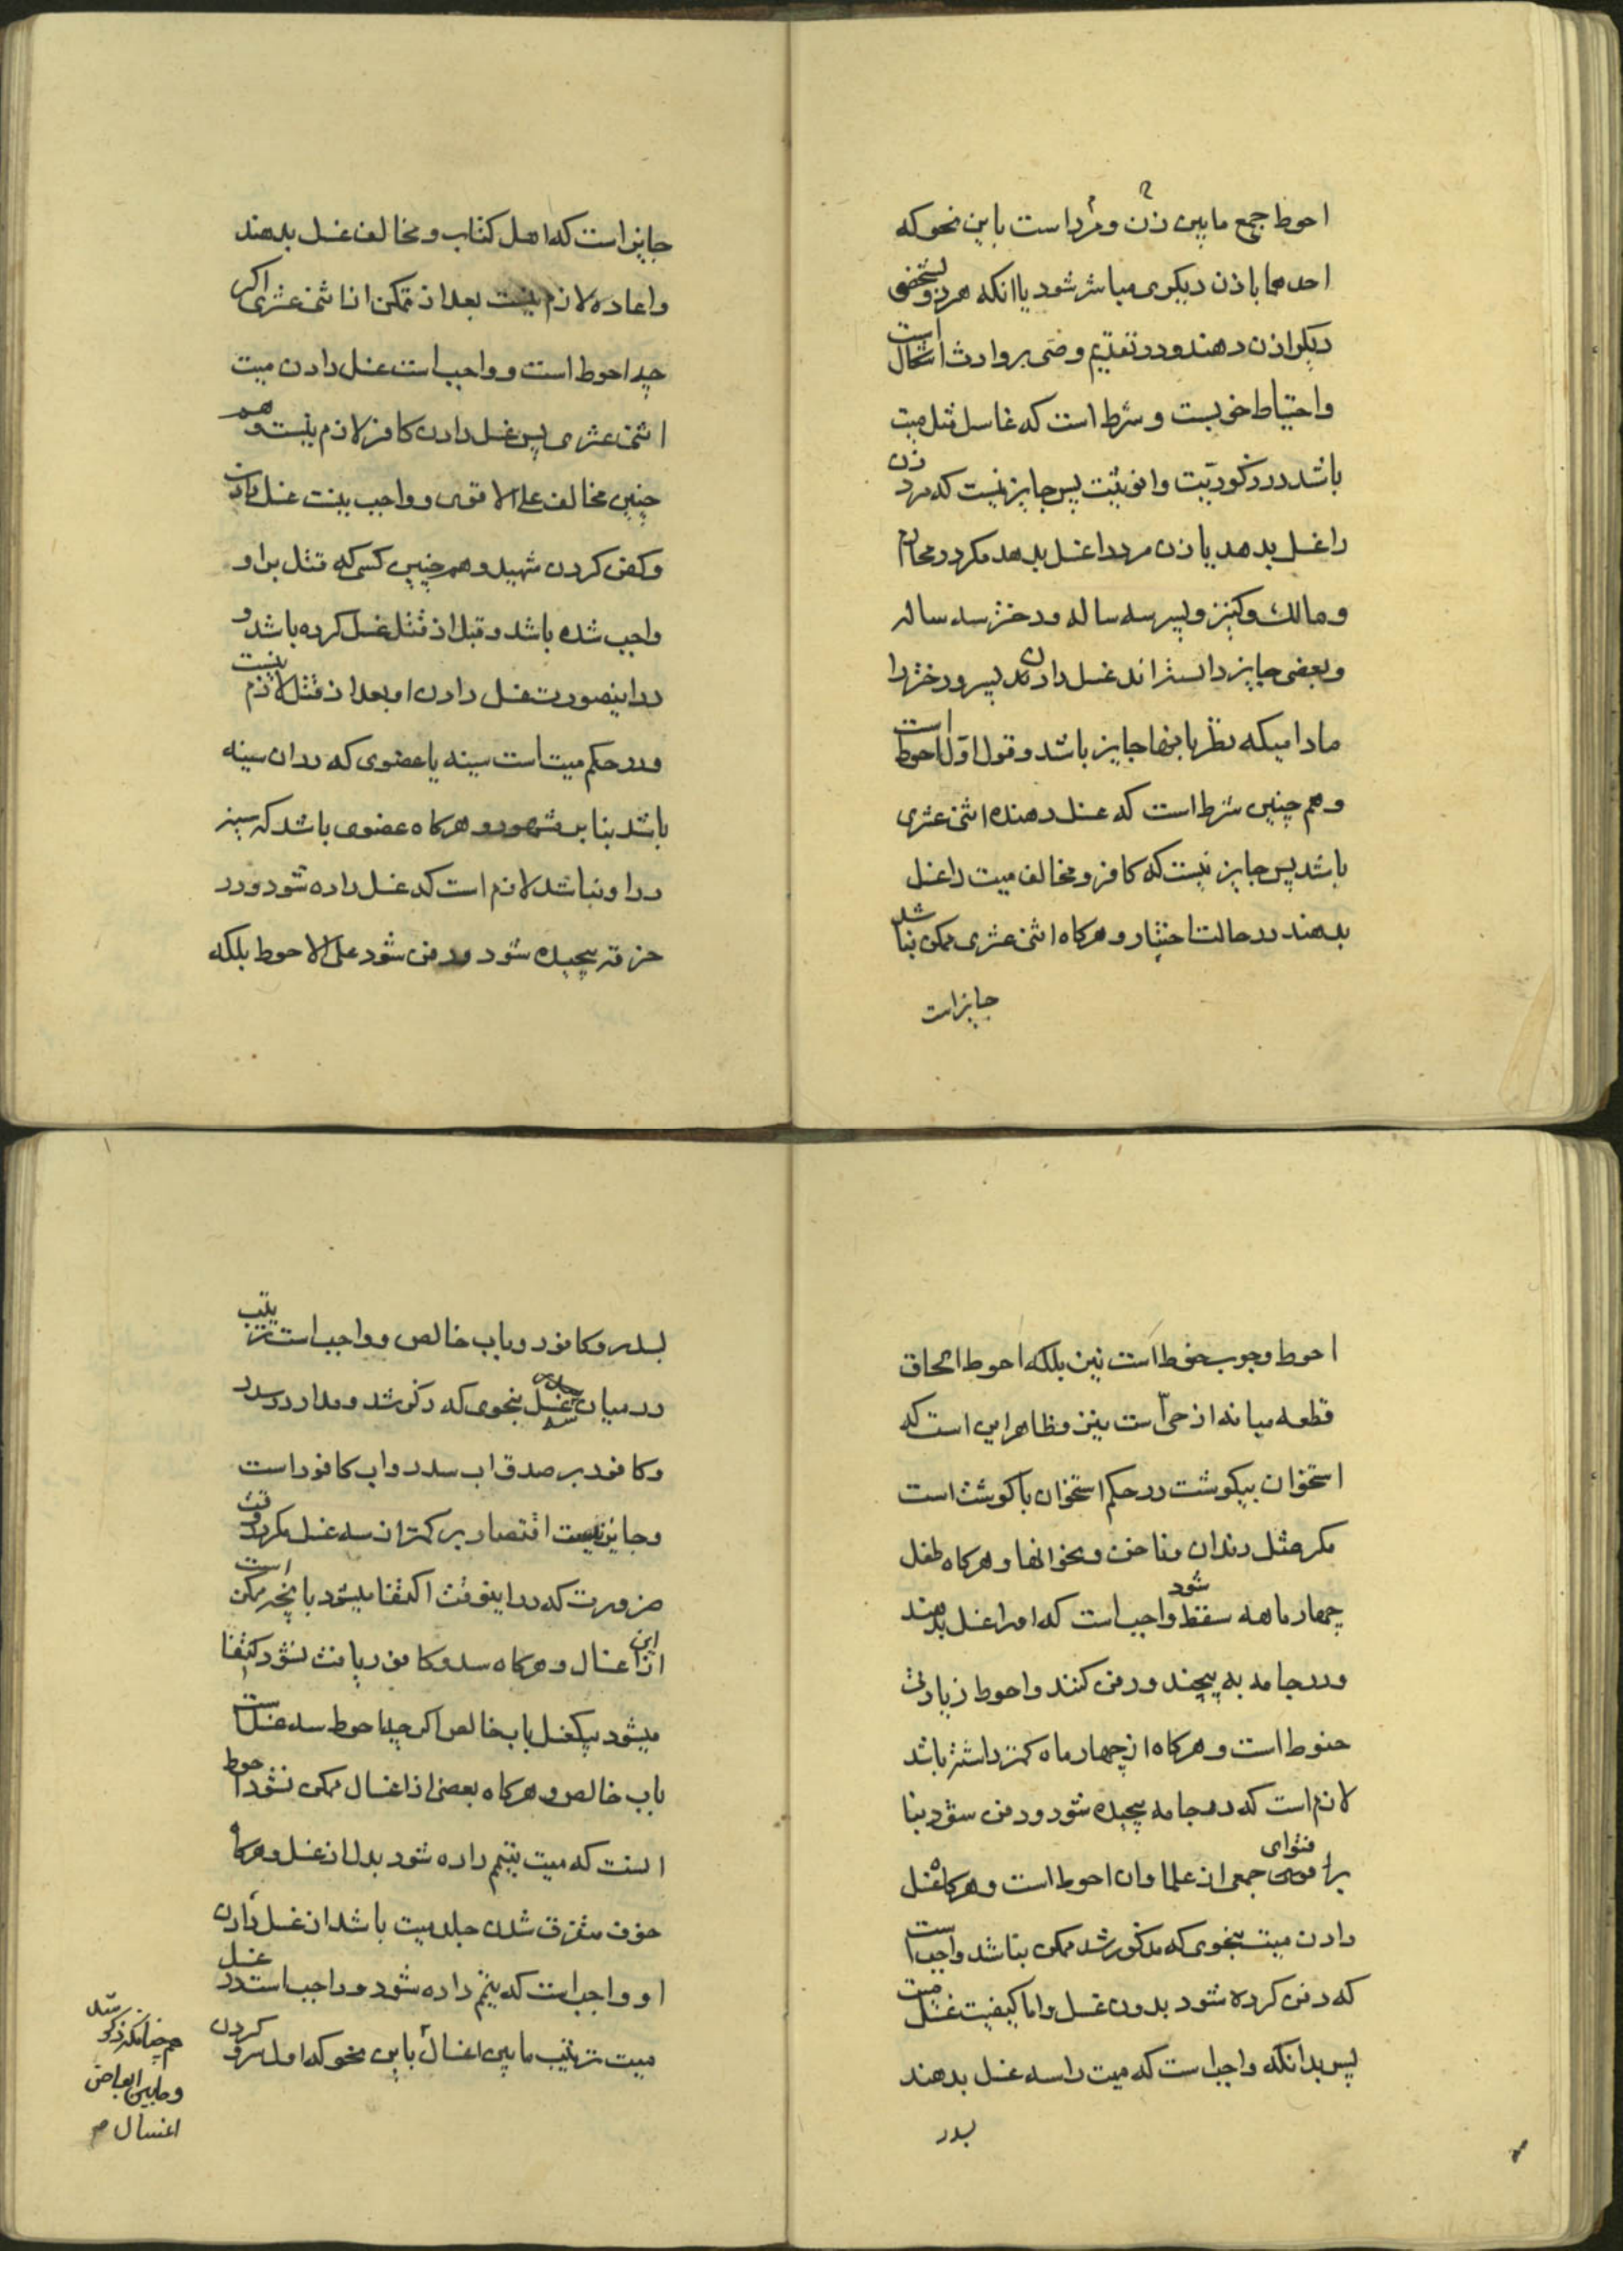 احوط جمع مابین زن و مرد است باین نحو که
احدهما باذن دیکری مباشر شود یا انکه هر دو بشخصی
دیکر اذن دهند و در تقدیم وصی بر وارث اشکال است
و احتیاط خوبست و شرط است که غاسل مثل میت
باشد در ذکوریت و انوثیت پس جایز نیست که مرد زن
را غسل بدهد یا زن مرد را غسل بدهد مکر در محارم
و مالک و کنیز و پسر سه ساله و دختر سه ساله
و بعضی جایز دانسته اند غسل دادن پسر و دختر را
مادامیکه نظر بانها جایز باشد و قول اول احوط است
و هم چنین شرط است که غسل دهنده اثنی عشری
باشد پس جایز نیست که کافر و مخالف میت را غسل
بدهند در حالت اختیار و هرکاه اثنی عشری ممکن نباشد
جایز است
جایز است که اهل کتاب و مخالف غسل بدهند
و اعاده لازم نیست بعد از تمکن از اثنی عشری اکر
چه احوط است و واجب است غسل دادن میت
اثنی عشری پس غسل دادن کافر لازم نیست و هم
چنین مخالف علی الاقوی و واجب نیست غسل دادن
و کفن کردن شهید و هم چنین کسی که قتل بر او
واجب شده باشد و قبل از قتل غسل کرده باشد و
در اینصورت غسل دادن او بعد از قتل لازم نیست
و در حکم میت است سینه یا عضوی که در ان سینه
باشد بنا بر مشهور و هرکاه عضوی باشد که سینه
در او نباشد لازم است که غسل داده شود و در
خرقه پیچیده شود و دفن شود علی الاحوط بلکه
احوط وجوب حنوط است نیز بلکه احوط الحاق
قطعه مبانه از حی است نیز و ظاهر این است که
استخوان بیکوشت در حکم استخوان با کوشت است
مکر مثل دندان و ناخن و نحو انها و هرکاه طفل
چهار ماهه سقط شود واجب است که او را غسل بدهند
و در جامه به پیچند و دفن کنند و احوط زیادتی
حنوط است و هرکاه از چهار ماه کمتر داشته باشد
لازم است که در جامه پیچیده شود و دفن شود بنا
بر فتوای جمعی از علما و ان احوط است و هرکاه غسل
دادن میت بنحوی که مذکور شد ممکن نباشد واجب است
که دفن کرده شود بدون غسل و اما کیفیت غسل میت
پس بدانکه واجب است که میت را سه غسل بدهند
بسدر
بسدر و کافور و باب خالص و واجب است ترتیب
در میان سه غسل بنحوی که ذکر شد و مدار در سدر
و کافور بر صدق اب سدر و اب کافور است
و جایز نیست اقتصار بر کمتر از سه غسل مکر در وقت
ضرورت که در اینوقت اکتفا میشود بانچه ممکن است
از این اغسال و هرکاه سدر و کافور یافت نشود اکتفا
میشود بیکغسل باب خالص اکر چه احوط سه غسل است
باب خالص و هرکاه بعضی از اغسال ممکن نشود احوط
انست که میت تیمم داده شود بدل از غسل و هرکاه
خوف متفرق شدن جلد میت باشد از غسل دادن
او واجب است که تیمم داده شود و واجب است در غسل
میت ترتیب مابین اغسال باین نحو که اول سر و کردن
هم چنانکه ذکر شد
و مابین ابعاض
اغسال